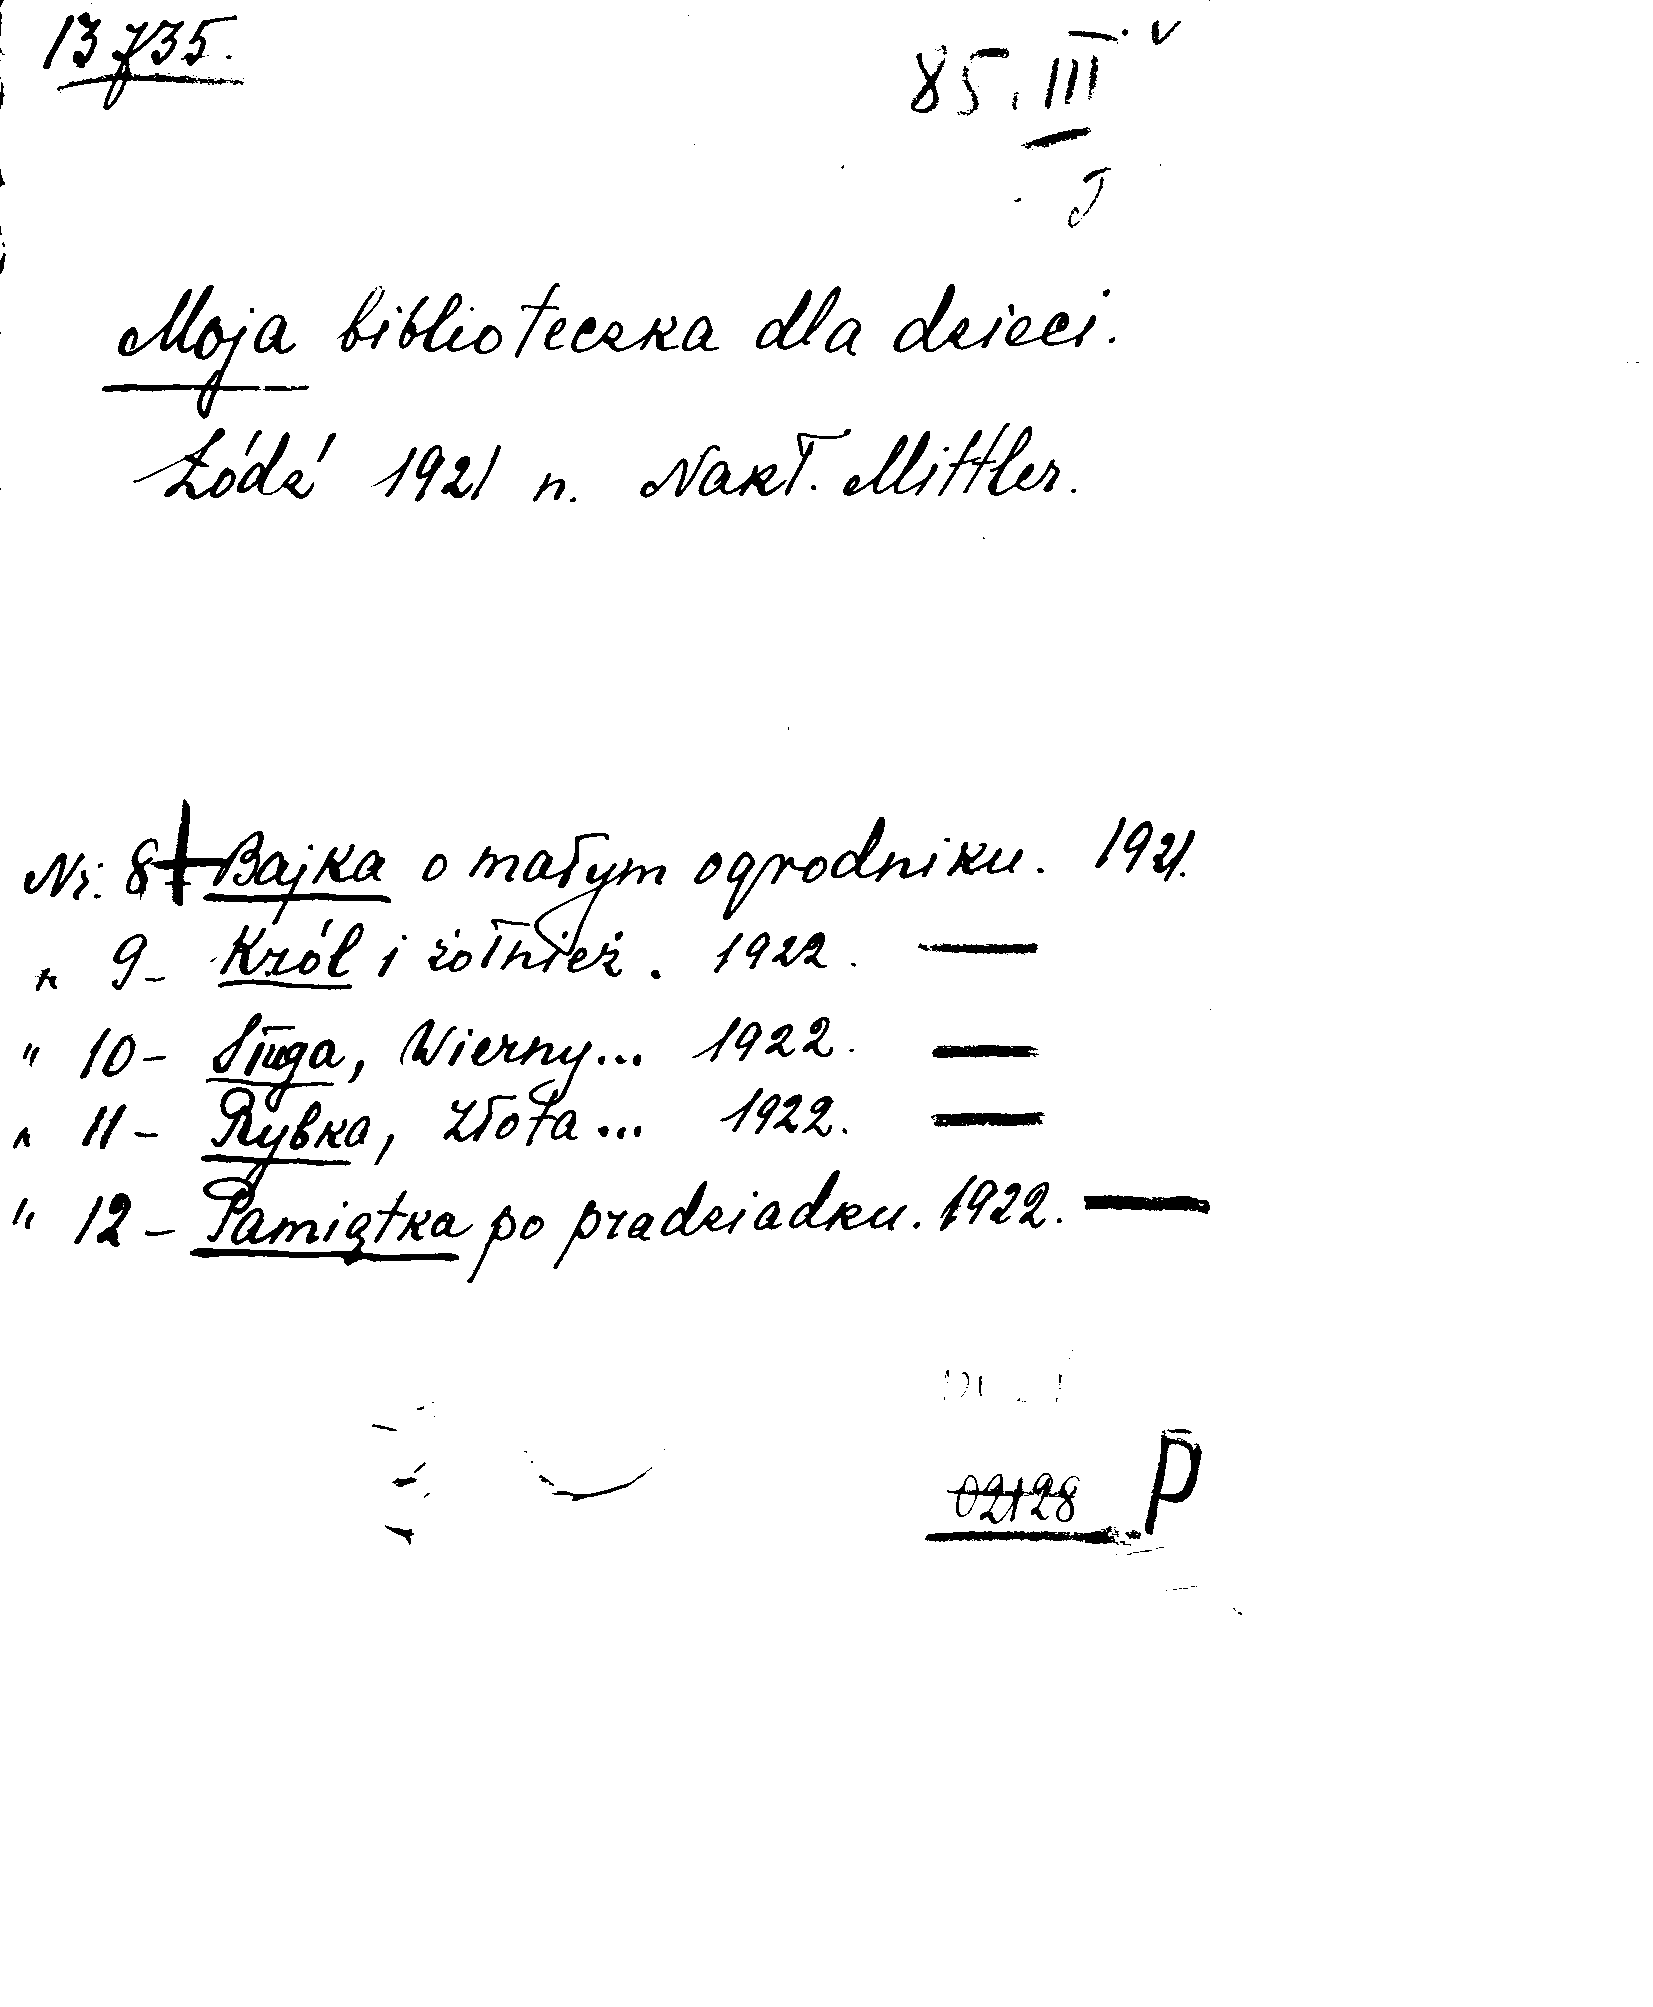 13735.
85. III. v
J
Moja biblioteczka dla dzieci.
Łódź 1921 n. Nakł. Mittler.
Nr. 8 Bajka o małym ogrodniku. 1921.
" 9 - Król i żołnierz. 1922. —
" 10 - Sługa, Wierny... 1922. —
" 11 - Rybka, złota... 1922. —
" 12 - Pamiątka po pradziadku. 1922. —
02128 P